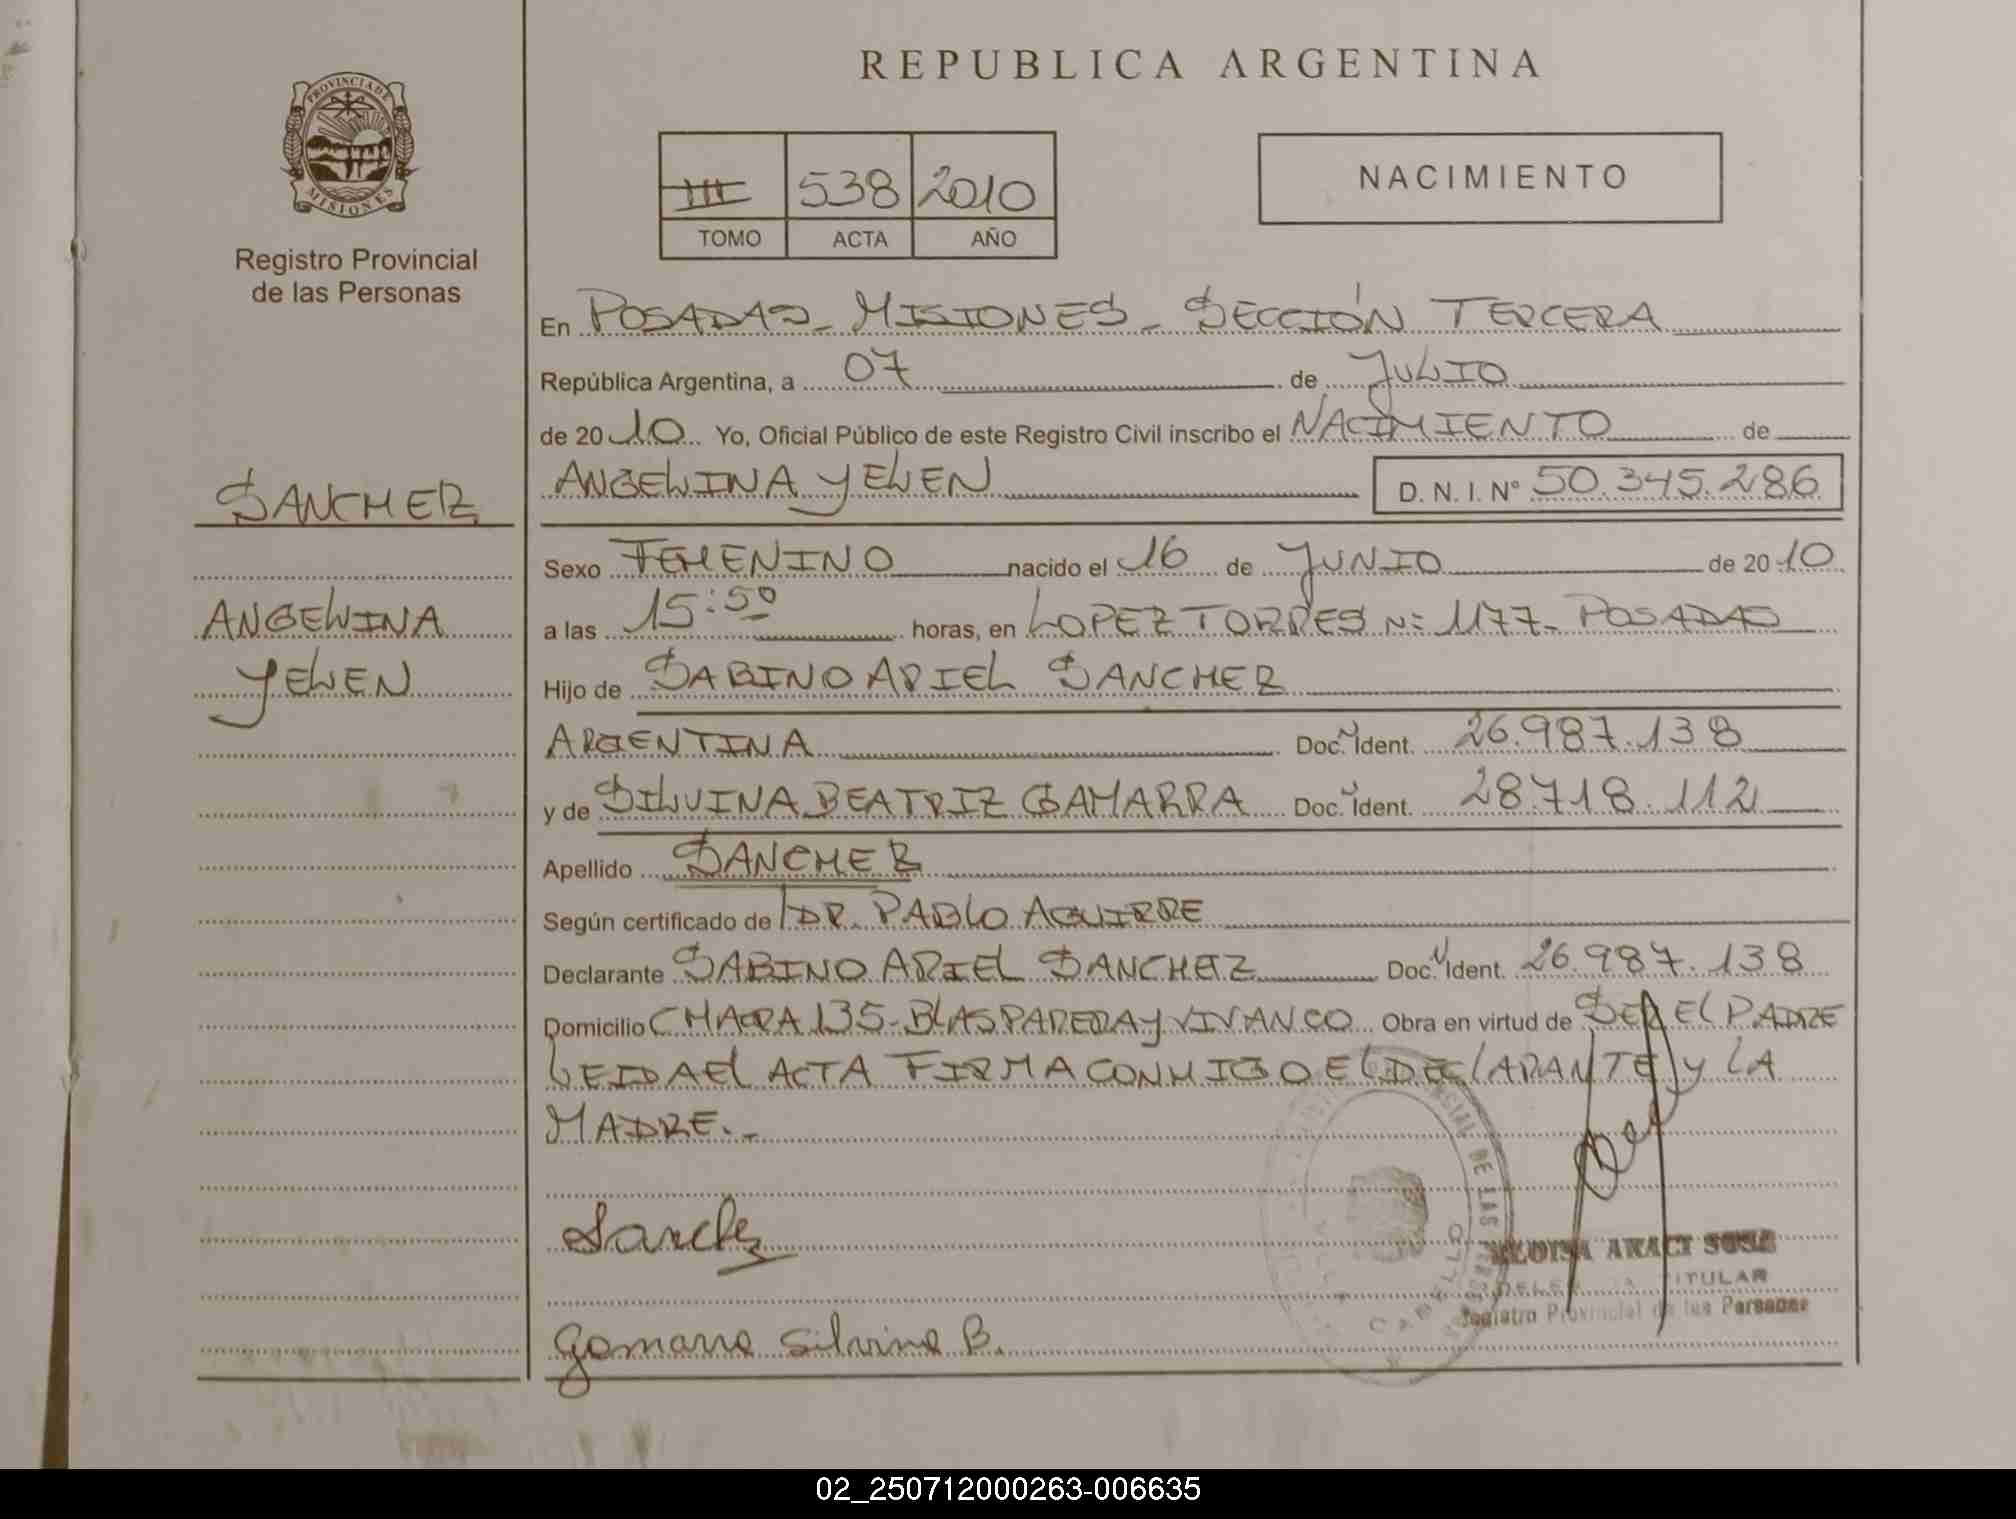 REPUBLICA ARGENTINA
PROVINCIA DE
MISIONES
Registro Provincial
de las Personas
III 538 2010
TOMO ACTA AÑO
NACIMIENTO
En POSADAS - MISIONES - SECCIÓN TERCERA
República Argentina, a 07 de JULIO
de 2010 Yo, Oficial Público de este Registro Civil inscribo el NACIMIENTO de
ANGELINA YELEN D. N. I. Nº 50.345.286
SANCHEZ
ANGELINA
YELEN
Sexo FEMENINO nacido el 16 de JUNIO de 2010
a las 15:50 horas, en LOPEZ TORRES Nº 1177 - POSADAS
Hijo de SABINO ARIEL SANCHEZ
ARGENTINA Doc. Ident. 26.987.138
y de SILVINA BEATRIZ GAMARRA Doc. Ident. 28.718.112
Apellido SANCHEZ
Según certificado de DR. PABLO AGUIRRE
Declarante SABINO ARIEL SANCHEZ Doc. Ident. 26.987.138
Domicilio CHACRA 135 - BLAS PARERA Y VIVANCO Obra en virtud de SER EL PADRE
LEIDA EL ACTA FIRMA CONMIGO EL DECLARANTE Y LA
MADRE.-
Sanchz
Gamarra Silvina B.
ARACI SOSA
TITULAR
Registro Provincial de las Personas
02_250712000263-006635